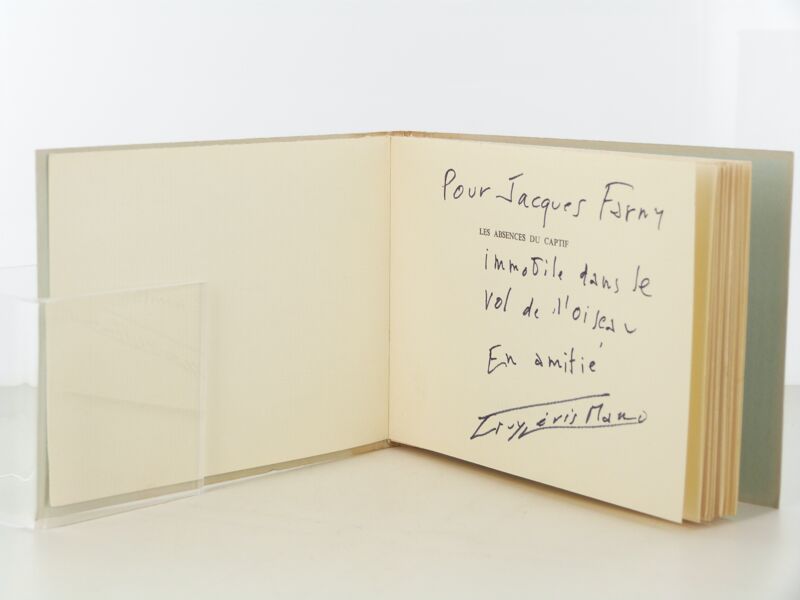 Pour Jacques Farny
LES ABSENCES DU CAPTIF
immobile dans le
vol de l'oiseau
En amitié
Guy Lévis Mano